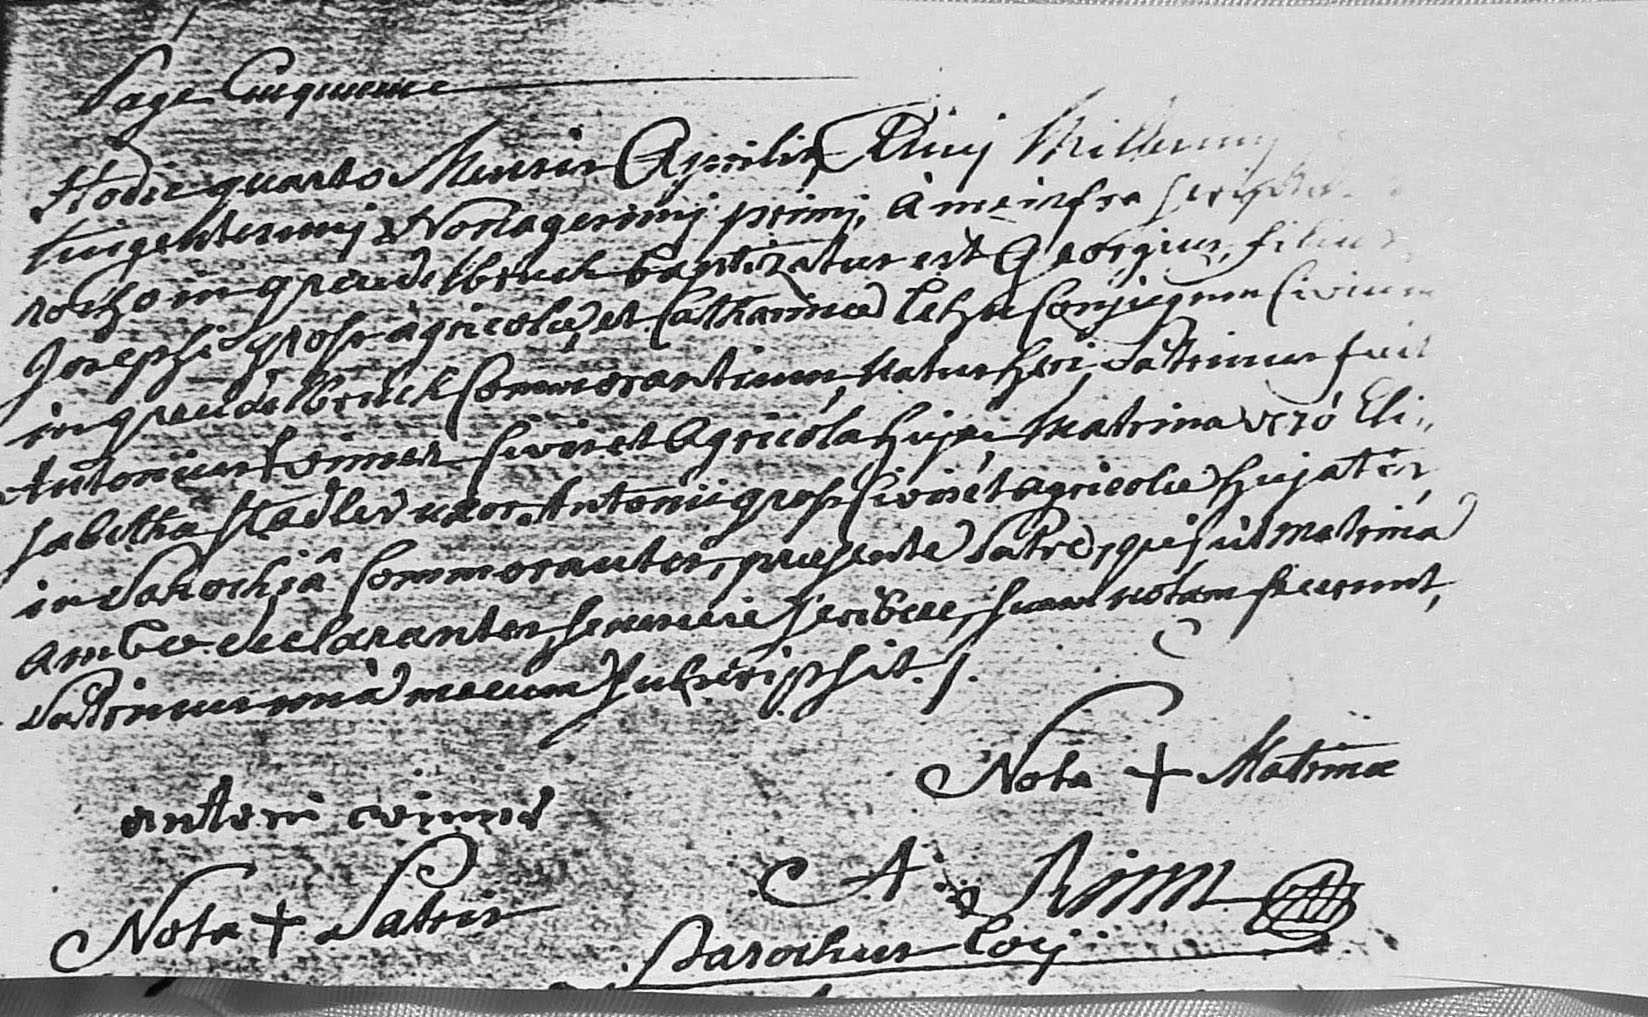 Page Cinquieme
Hodie quarto Mensis Aprilis Anni Millesimi
tingentesimi Nonagesimi primi, à me infra scripto
rocho in greudelbruch baptizatus est Georgius, filius
Josephi gross agricolæ, et Catharinæ Conjugum Civium
in greudelbruch Commorantium, natus heri, Patrinus fuit
Antonius civis et Agricola hujas, Matrina verò Eli,,
sabetha Stadler uxor Antonii gross Civis et agricolæ hujatis,
in Parochiâ Commorantes, præsente Patre, qui ut Matrina
ambo declarantes, se nescire scribere, suam notam fecerunt,
Patrinus unà mecum subscripsit ./.
Nota + Matrinæ
antoni
Nota + Patris
A. Rimm
Parochus loci